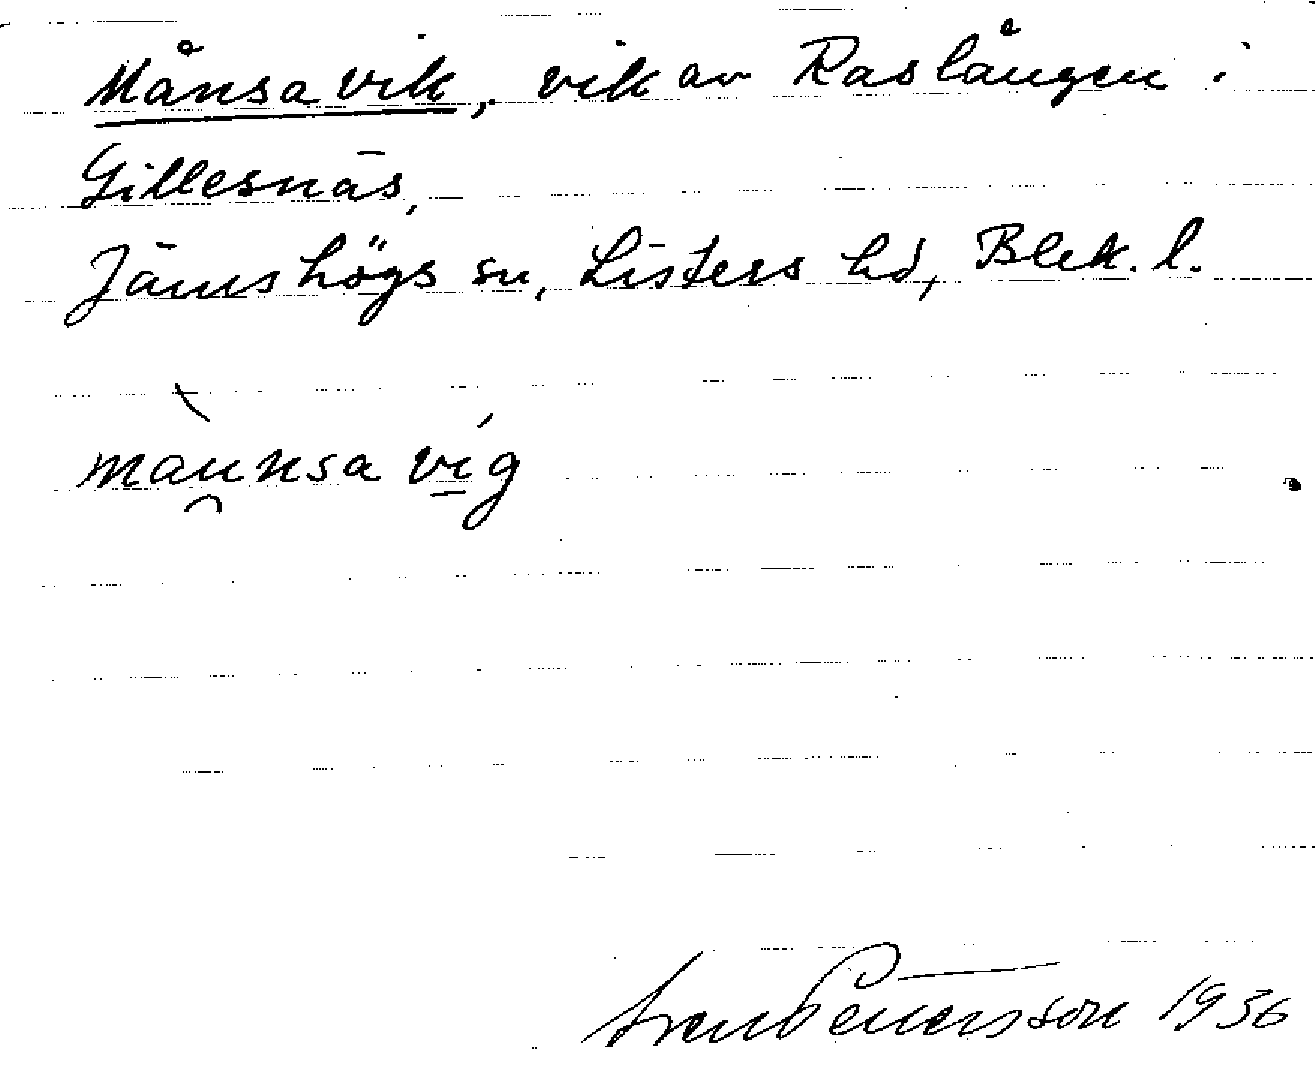 Månsavik, vik av Raslången i
Gillesnäs,
Jämshögs sn, Listers hd, Blek. l.
màu̯nsa ví̱g
Sven Pettersson 1936